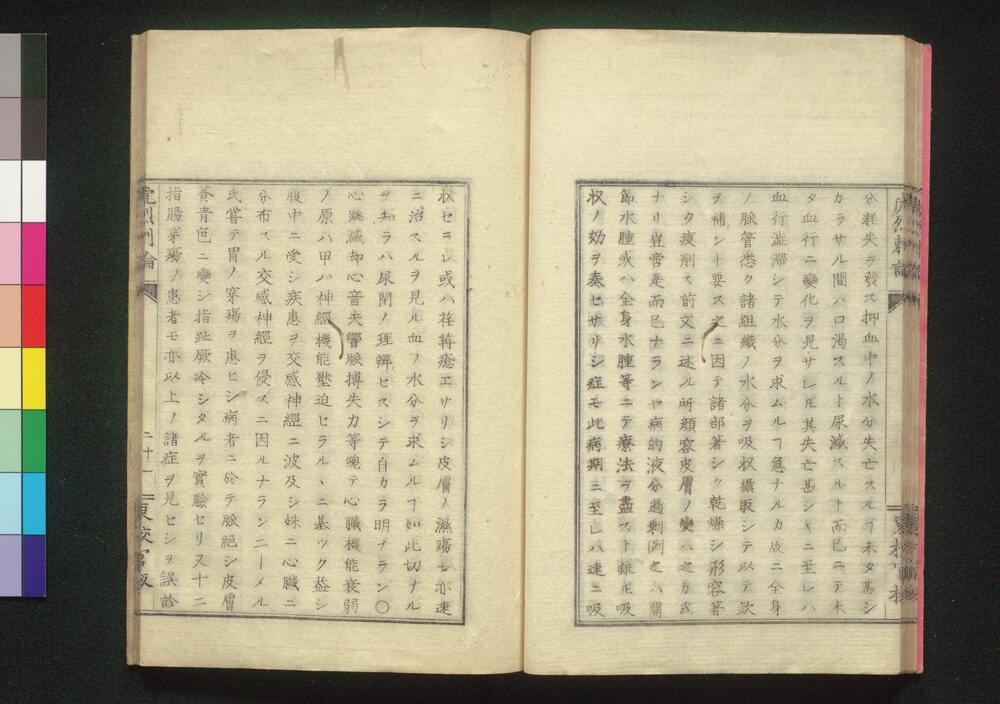 分耗失ヲ發ス抑血中ノ水分失亡スルヿ未タ甚シ
カラサル間ハ口渇スルト尿減スルト而已ニテ未
タ血行ニ變化ヲ見サレ𪜈其失亡甚シキニ至レハ
血行澁滞シテ水分ヲ求ムルヿ急ナルカ故ニ全身
ノ脈管悉ク諸組織ノ水分ヲ吸収攝取シテ以テ欽
ヲ補ンヿ要ス之ニ因テ諸部著シク乾燥シ形容著
シク瘦削ス前文ニ述ル所顔容皮膚ノ變ハ之カ為
ナリ豈啻是而已ナランヤ病的液分過剰例之ハ關
節水腫或ハ全身水腫等ニテ療法ヲ盡スト雖𪜈吸
収ノ効ヲ奏セサリシ症モ此病期ニ至レハ速ニ吸
収セラレ或ハ荏苒癒エサリシ皮膚ノ濕瘍モ亦速
ニ治スルヲ見ル血ノ水分ヲ求ムルヿ如此切ナル
ヲ知ラハ尿閉ノ理辨セスシテ自カラ明ナラン〇
心跳減却心音失響脈搏失力等總テ心臓機能衰弱
ノ原ハ甲ハ神經機能壓迫セラルヽニ基ツク葢シ
腹中ニ受シ疾患ヲ交感神經ニ波及シ殊ニ心臓ニ
分布スル交感神經ヲ侵スニ因ルナランニーメル
氏嘗テ胃ノ穿瘍ヲ患ヒシ病者ニ於テ脈絶シ皮膚
蒼青色ニ變シ指趾厥冷シタルヲ實驗セリ又十二
指腸穿瘍ノ患者モ亦以上ノ諸症ヲ見ヒシヲ誤診
二十一
東校官版